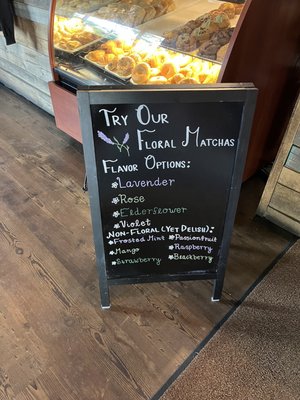 Try Our
Floral Matchas
Flavor Options:
Lavender
Rose
Elderflower
Violet
Non-Floral (Yet Delish):
Frosted Mint
Passionfruit
Mango
Raspberry
Strawberry
Blackberry